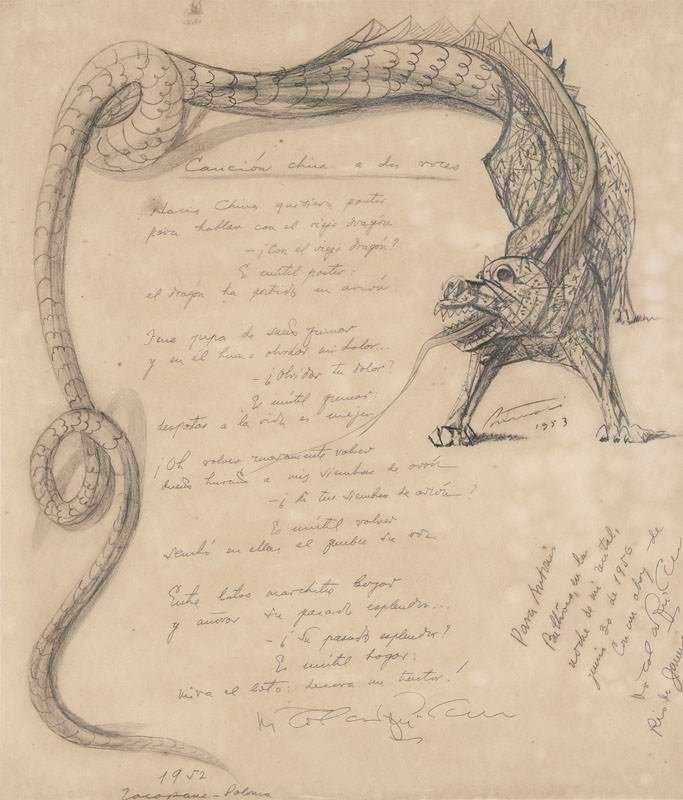 Canción china a dos voces
China, quisiera
para hablar con el viejo dragón
- ¿Con el viejo dragón?
Es inútil
el dragón ha partido en avión.
de sueño fumar
y en el humo olvidar mi dolor...
- ¿Olvidar tu dolor?
Es inútil fumar:
despertar a la vida es mejor.
¡Oh volver nuevamente volver
dueño a mis siembras de arroz
- ¿A tus siembras de arroz?
Es inútil volver
sembró en ellas el pueblo su voz
Entre lotos marchitos bogar
y añorar su pasado esplendor...
- ¿Su pasado esplendor?
Es inútil bogar:
mira el loto: decora un tractor!
1953
1952
Zacopane-Polonia
Para
en la
noche de mi natal,
junio 30 de 1956
Con un abrazo de
Rio de Janeiro